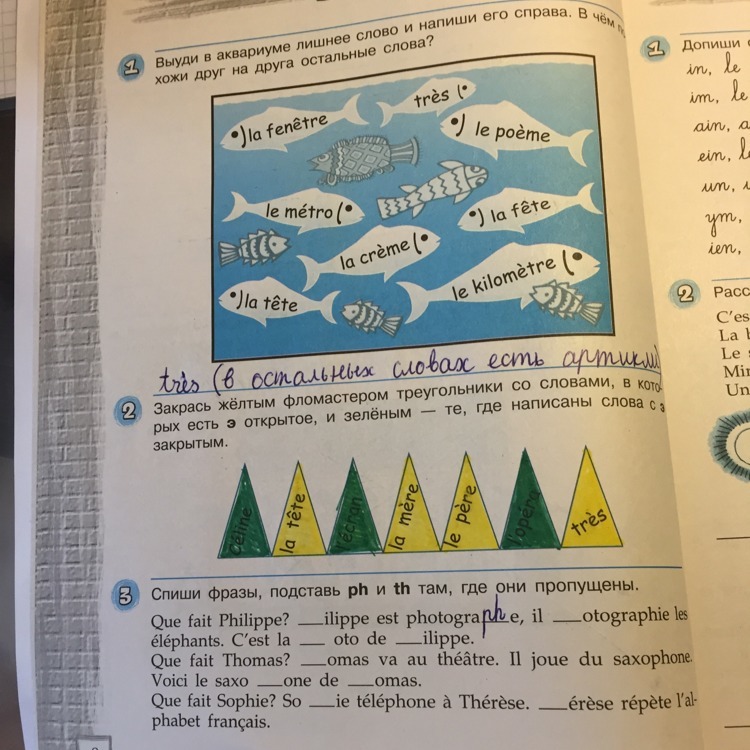 1 Выуди в аквариуме лишнее слово и напиши его справа. В чём по-
хожи друг на друга остальные слова?
la fenêtre
très
le poème
le métro
la fête
la crème
le kilomètre
la tête
très (в остальных словах есть артикли)
2 Закрась жёлтым фломастером треугольники со словами, в кото-
рых есть э открытое, и зелёным — те, где написаны слова с э
закрытым.
Céline
la tête
l'écran
la mère
le père
l'opéra
très
3 Спиши фразы, подставь ph и th там, где они пропущены.
Que fait Philippe? __ilippe est photographe, il __otographie les
éléphants. C'est la __ oto de __ilippe.
Que fait Thomas? __omas va au théâtre. Il joue du saxophone.
Voici le saxo __one de __omas.
Que fait Sophie? So __ie téléphone à Thérèse. __érèse répète l'al-
phabet français.
1 Допиши
in, le
im, le
ain, a
ein, l
un, u
ym,
ien,
2 Расс
C'es
La b
Le s
Min
Un